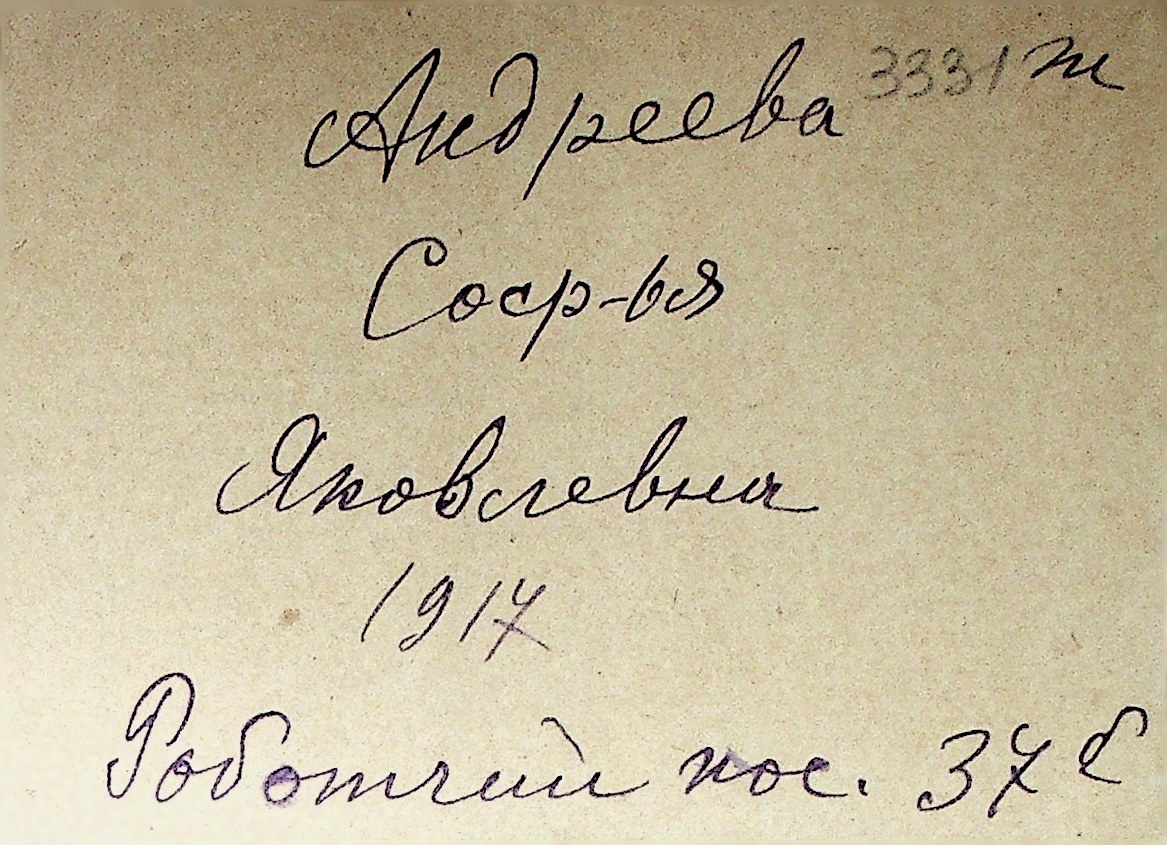 Андреева 3331 ж
Соф-ья
Яковлевна
1917
Роботчий пос. 37 б